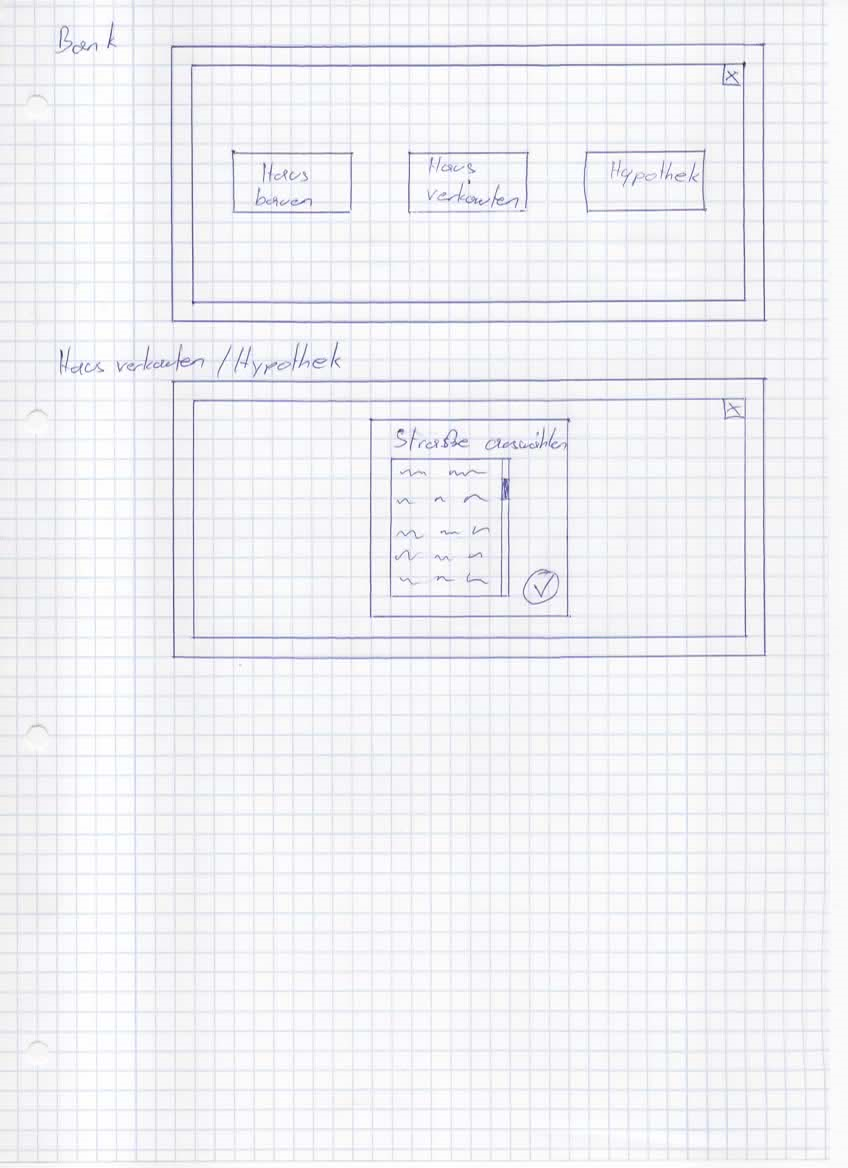 Bank
X
Haus
bauen
Haus
verkaufen
Hypothek
Haus verkaufen / Hypothek
X
Straße auswählen